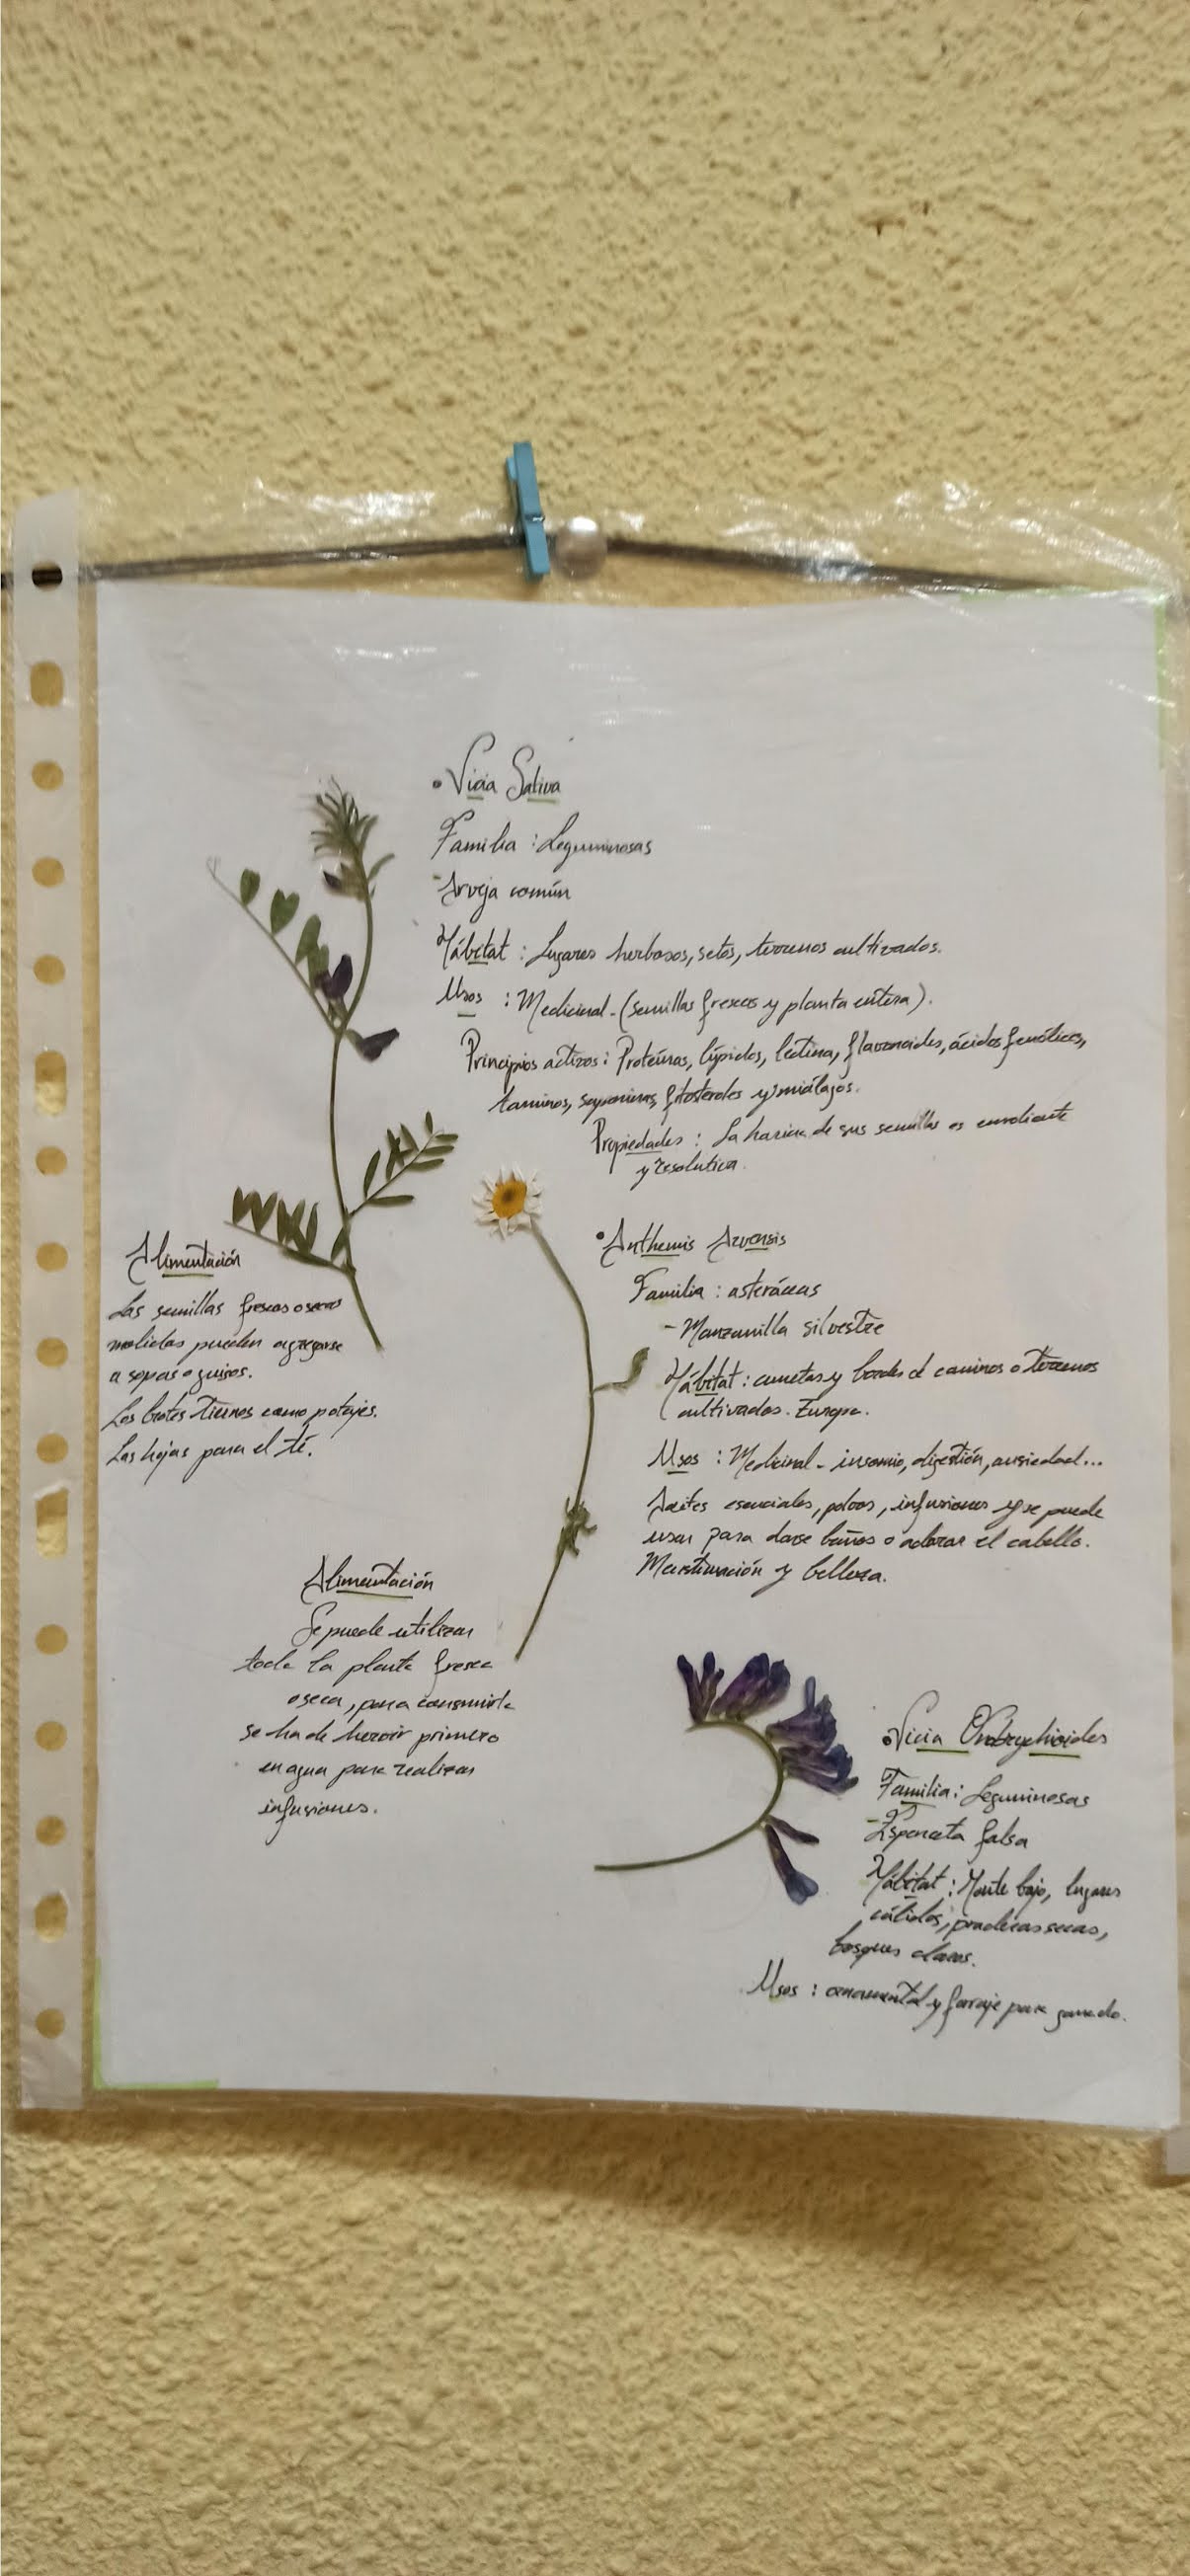 • Vicia Sativa
Familia : Leguminosas
- Arveja común
Hábitat : Lugares herbosos, setos, terrenos cultivados.
Usos : Medicinal - (semillas frescas y planta entera).
Principios activos : Proteínas, lípidos, lectina, flavonoides, ácidos fenólicos,
taninos, saponinas, fitosteroles y
Propiedades : La harina de sus semillas es emoliente
y resolutiva.
Alimentación
Las semillas frescas o secas
molidas pueden agregarse
a sopas o guisos.
Los brotes tiernos como potajes.
Las hojas para el té.
• Anthemis Arvensis
Familia : asteráceas
- Manzanilla silvestre
Hábitat : cunetas y bordes d caminos o terrenos
cultivados. Europa.
Usos : Medicinal - insomnio, digestión, ansiedad...
Aceites esenciales, polvos, infusiones y se puede
usar para darse baños o aclarar el cabello.
Menstruación y belleza.
Alimentación
Se puede utilizar
toda la planta fresca
o seca, para consumirla
se ha de hervir primero
en agua para realizar
infusiones.
• Vicia Onobrychioides
Familia : Leguminosas
- Esparceta falsa
Hábitat : Monte bajo, lugares
cálidos, praderas secas,
bosques claros.
Usos : ornamental y forraje para ganado.